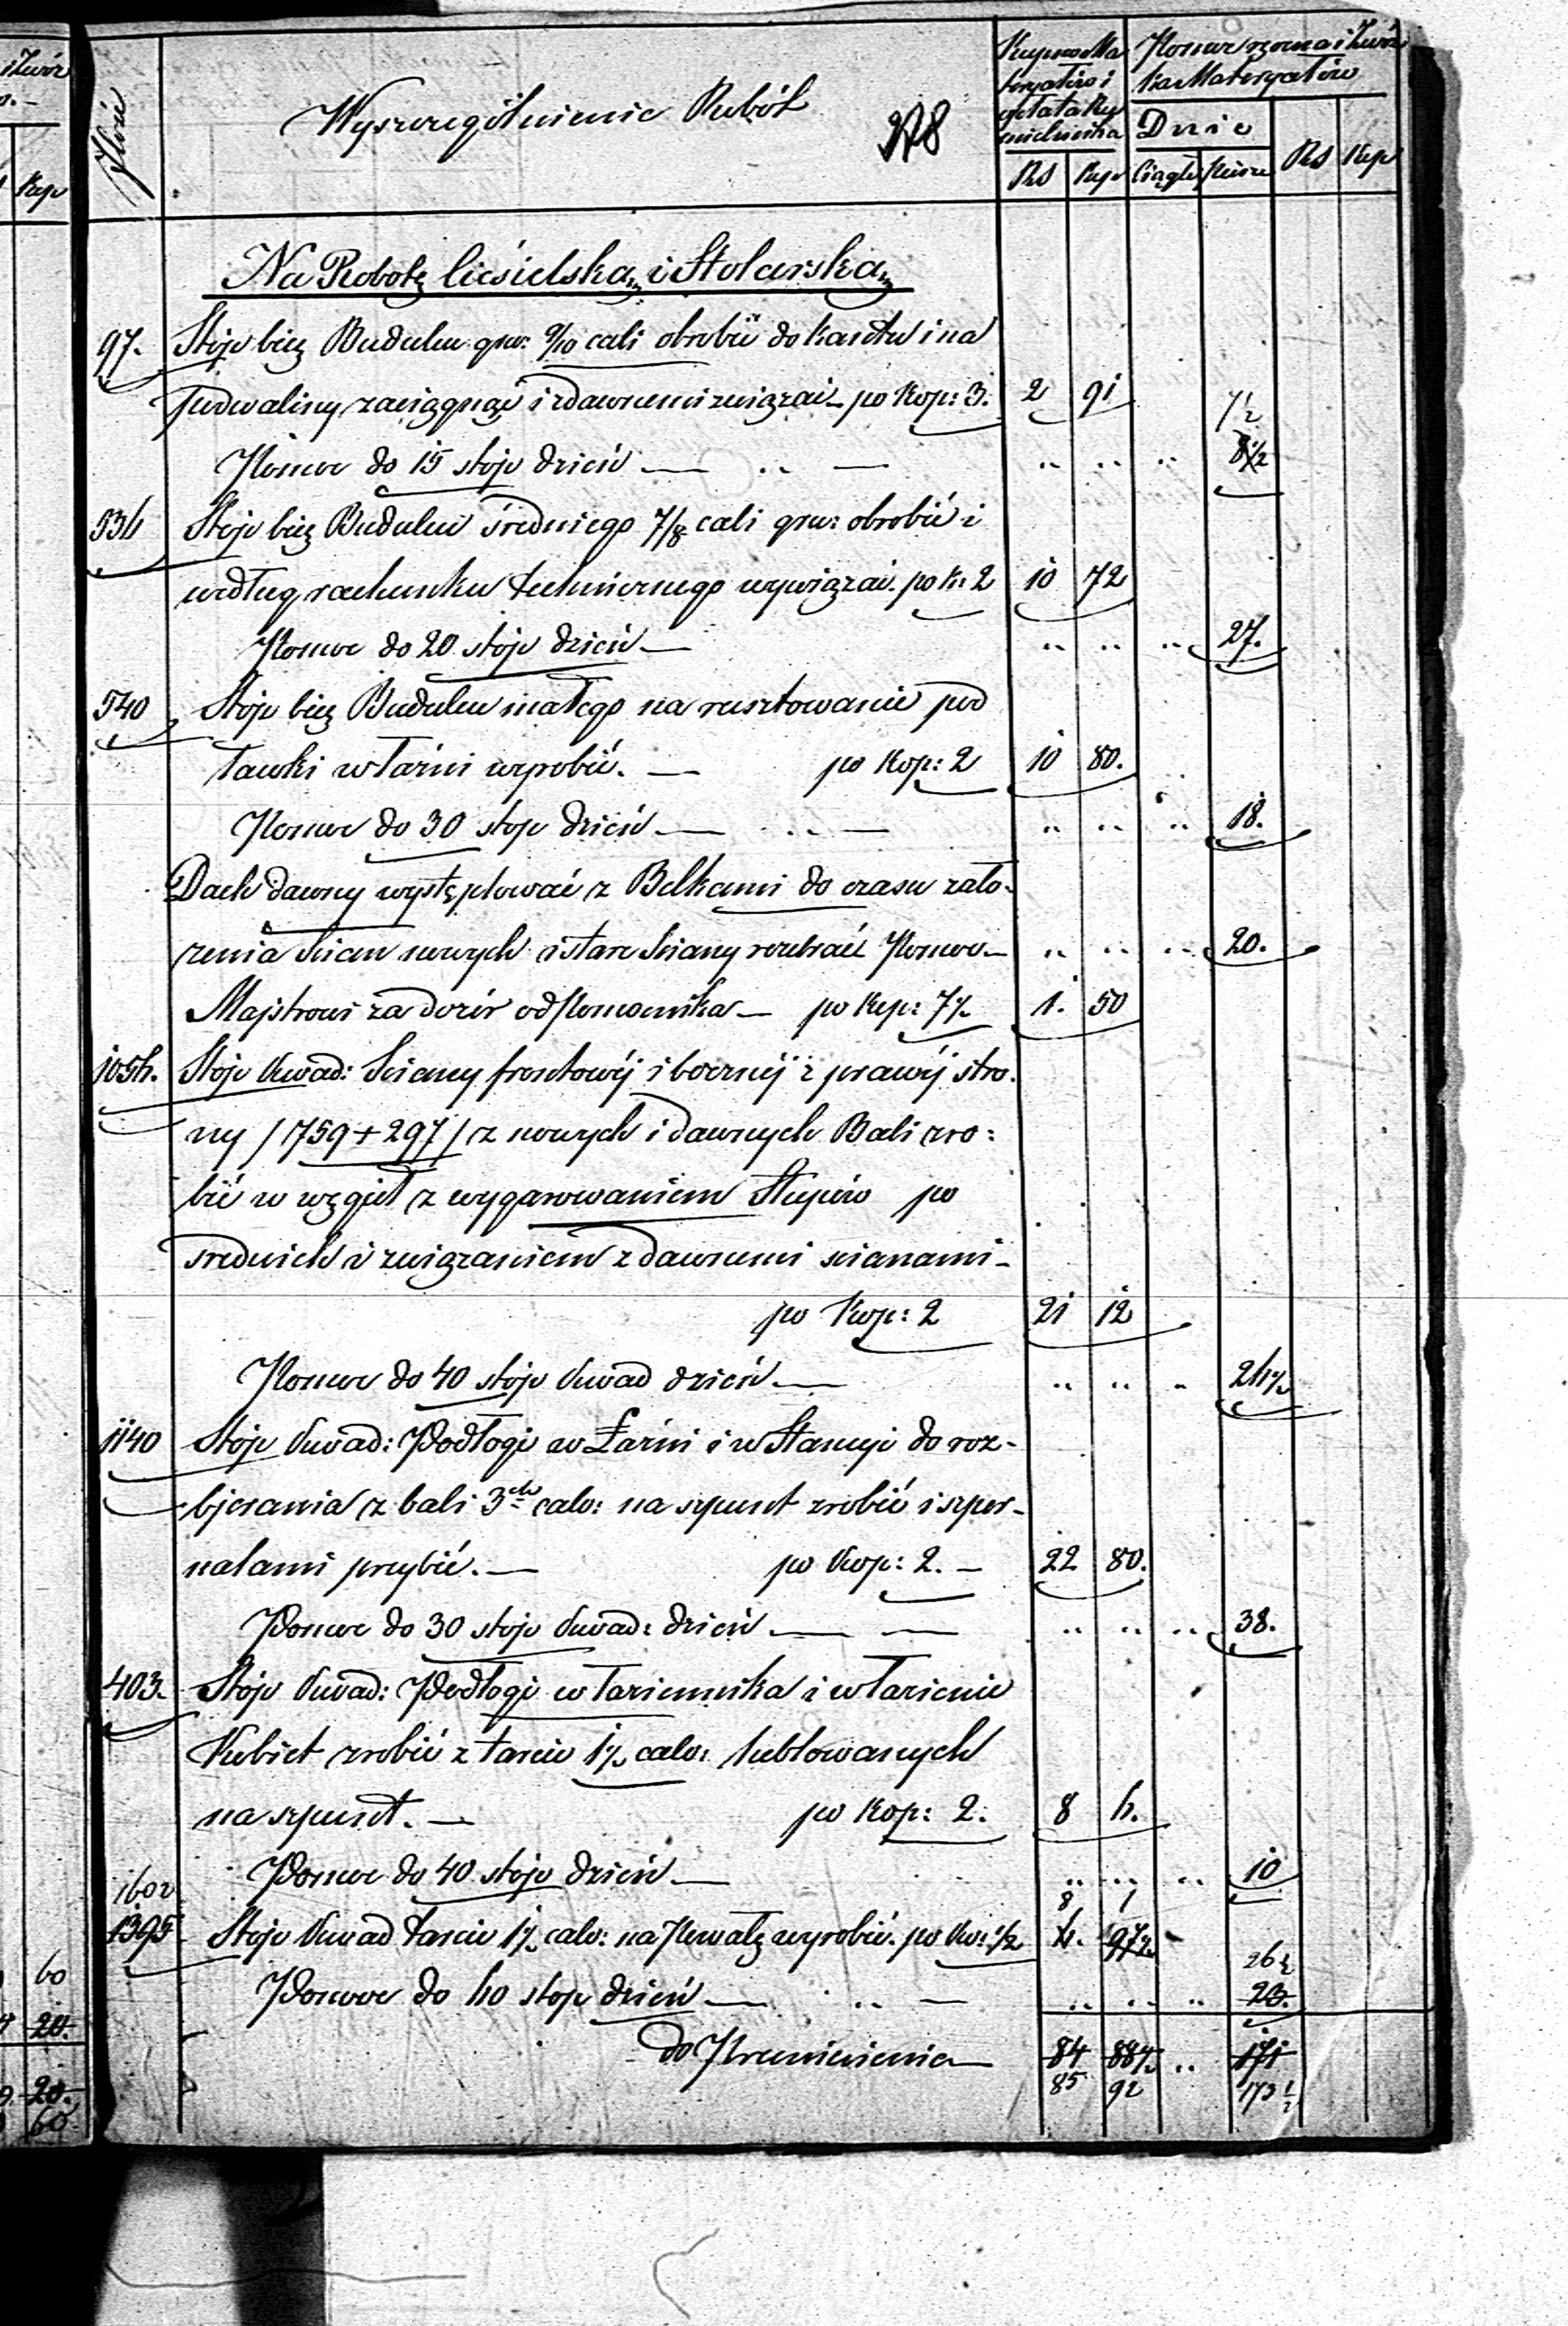 Ilość
Wyszczególnienie Robót
278
Kupno Ma
teryałów i
opłata Rze
mieślnika
Pomoc ręczna i Zwóz
ka Materyałów
Dnie
RS Kop Ciągłe Piesze RS Kop
Na Robotę Ciesielską i Stolarską
97. Stóp bież Budulcu grub: 9/10 cali obrobić do kantu i na
podwaliny zaciągnąć i z dawnemi związać — po kop: 3. 2 91
7 1/2
Pomoc do 15 stóp dzień — .. — .. .. .. 8 1/2
536 Stóp bież Budulcu średniego 7/8 cali grub: obrobić i
według rachunku technicznego wywiązać. po k: 2 10 72
Pomoc do 20 stóp dzień — .. .. .. 27.
540 Stóp bież Budulcu małego na rusztowanie pod
ławki w łaźni wyrobić. — po Kop: 2 10 80.
Pomoc do 30 stóp dzień — .. — .. .. .. 18.
Dach dawny występlować z Belkami do czasu zało-
żenia ścian nowych i stare ściany rozebrać Pomoc — .. .. .. 20.
Majstrowi za dozór od Pomocnika — po Kop: 7 1/2 1. 50
1056. Stóp kwad: Sciany frontowéj i bocznéj z prawéj stro-
ny / 759 + 297 / z nowych i dawnych Bali zro:
bić w węgieł z wygarowaniem Słupów po
srednich i związaniem z dawnemi scianami —
po Kop: 2 21 12
Pomoc do 40 stóp kwad dzień — .. .. .. 26 1/2
1140 Stóp kwad: Podłogi w Łaźni i w Stancyi do roz-
bjerania z bali 3ch calo: na szpunt zrobić i szper-
nalami przybić. — po kop: 2. — 22 80.
Pomoc do 30 stóp kwad: dzień — — .. .. .. 38.
403. Stóp kwad: Podłogi w łaziennika i w łazience
Kobiet zrobić z tarcic 1 1/2 calo: heblowanych
na szpunt. — po Kop: 2. 8 6.
Pomoc do 40 stóp dzień — .. .. .. 10
1602 8 1
1395 Stóp kwad tarcic 1 1/2 calo: na Powałę wyrobić. po ko: 1/2 6. 97 1/2
26 1/2
Pomoc do 60 stóp dzień — .. — .. .. .. 23.
do Przeniesienia — 84 88 1/2 .. 171
85 92 173 1/2